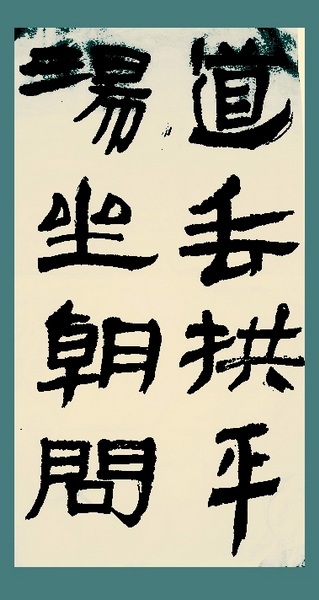 湯坐朝問
道垂拱平